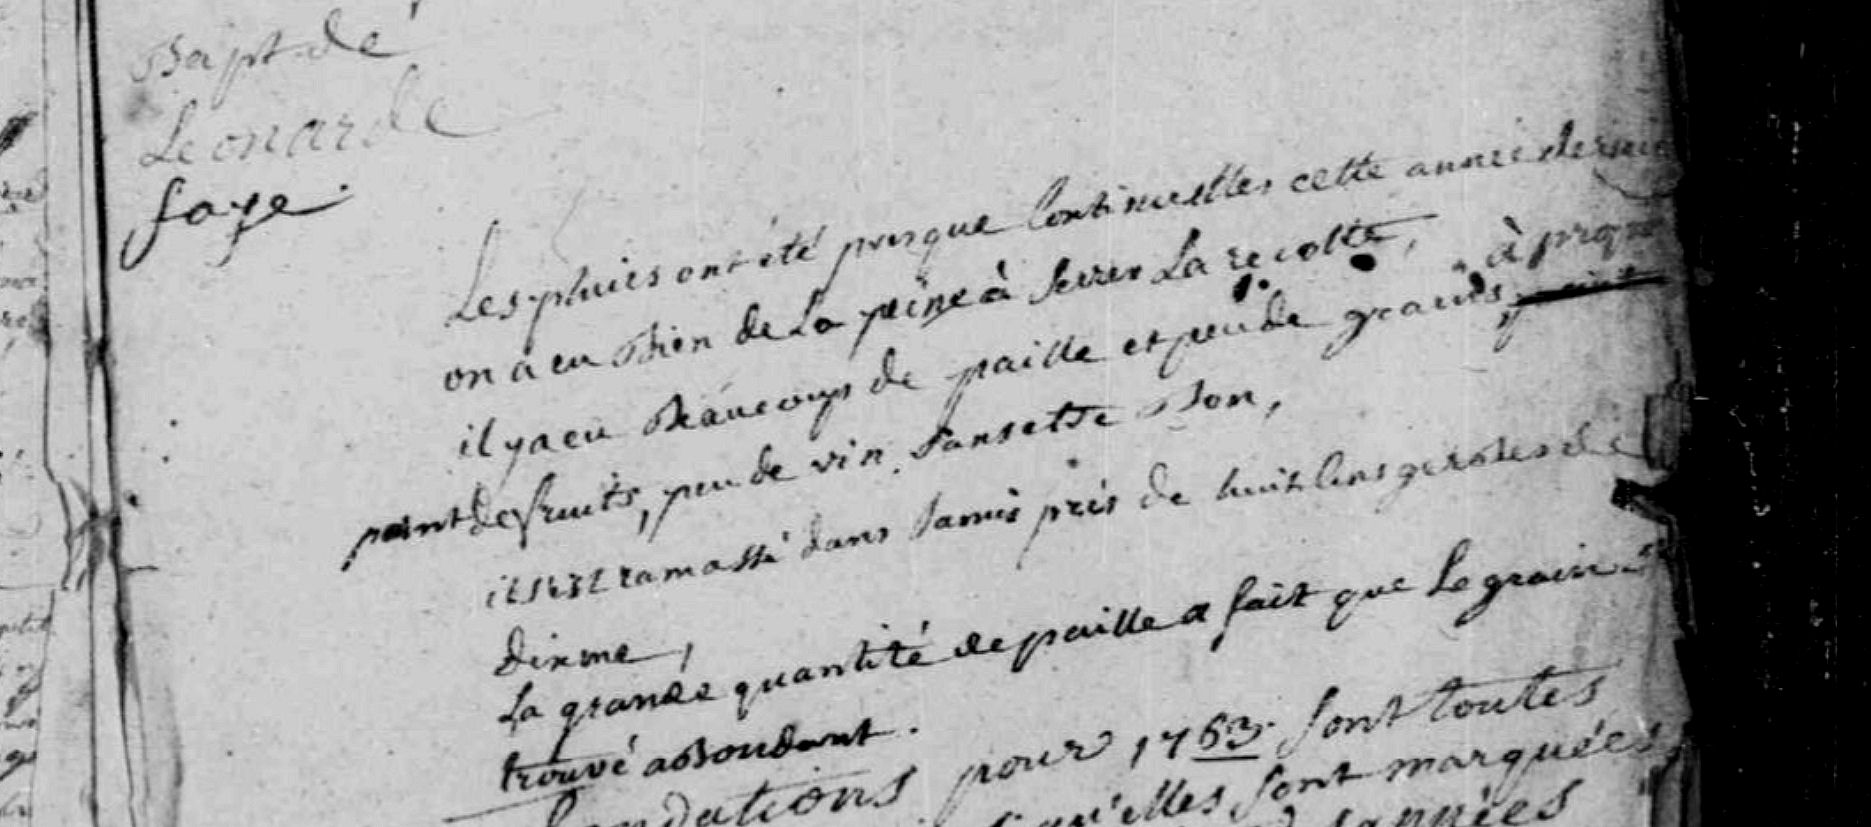 Bapt de
Leonarde
faye.
Les pluies ont été presque Continuelles cette année
on a eu Bien de La peine à serrer La recolte, à
il y a eu Beaucoup de paille et peu de grains,
point de fruits, peu de vin,
il s'est ramassé dans près de huit Cens gerbes de
dixme,
La grande quantité de paille a fait que Le grain s'est
trouvé abondant.
fondations pour 1763. sont toutes
qu'elles sont marquées
années